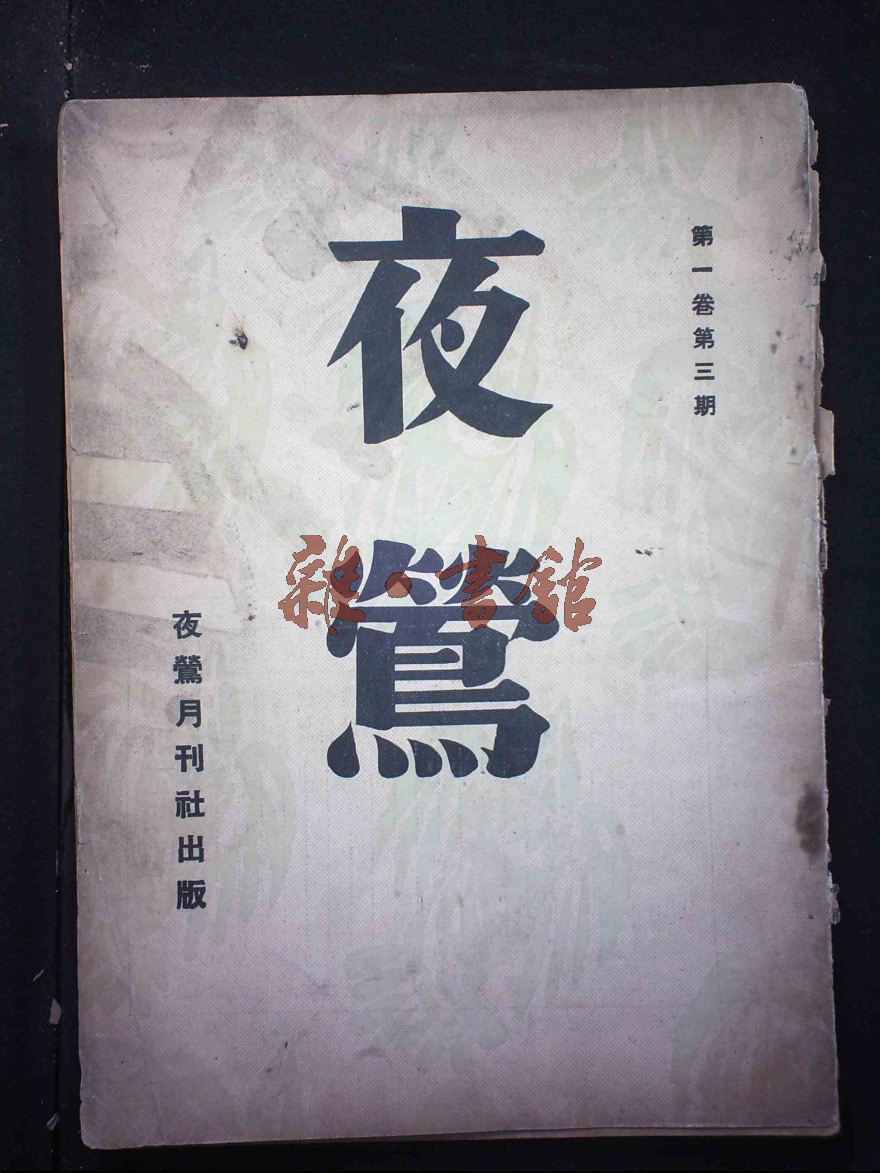 第一卷第三期
夜鶯
夜鶯月刊社出版
雜·書館